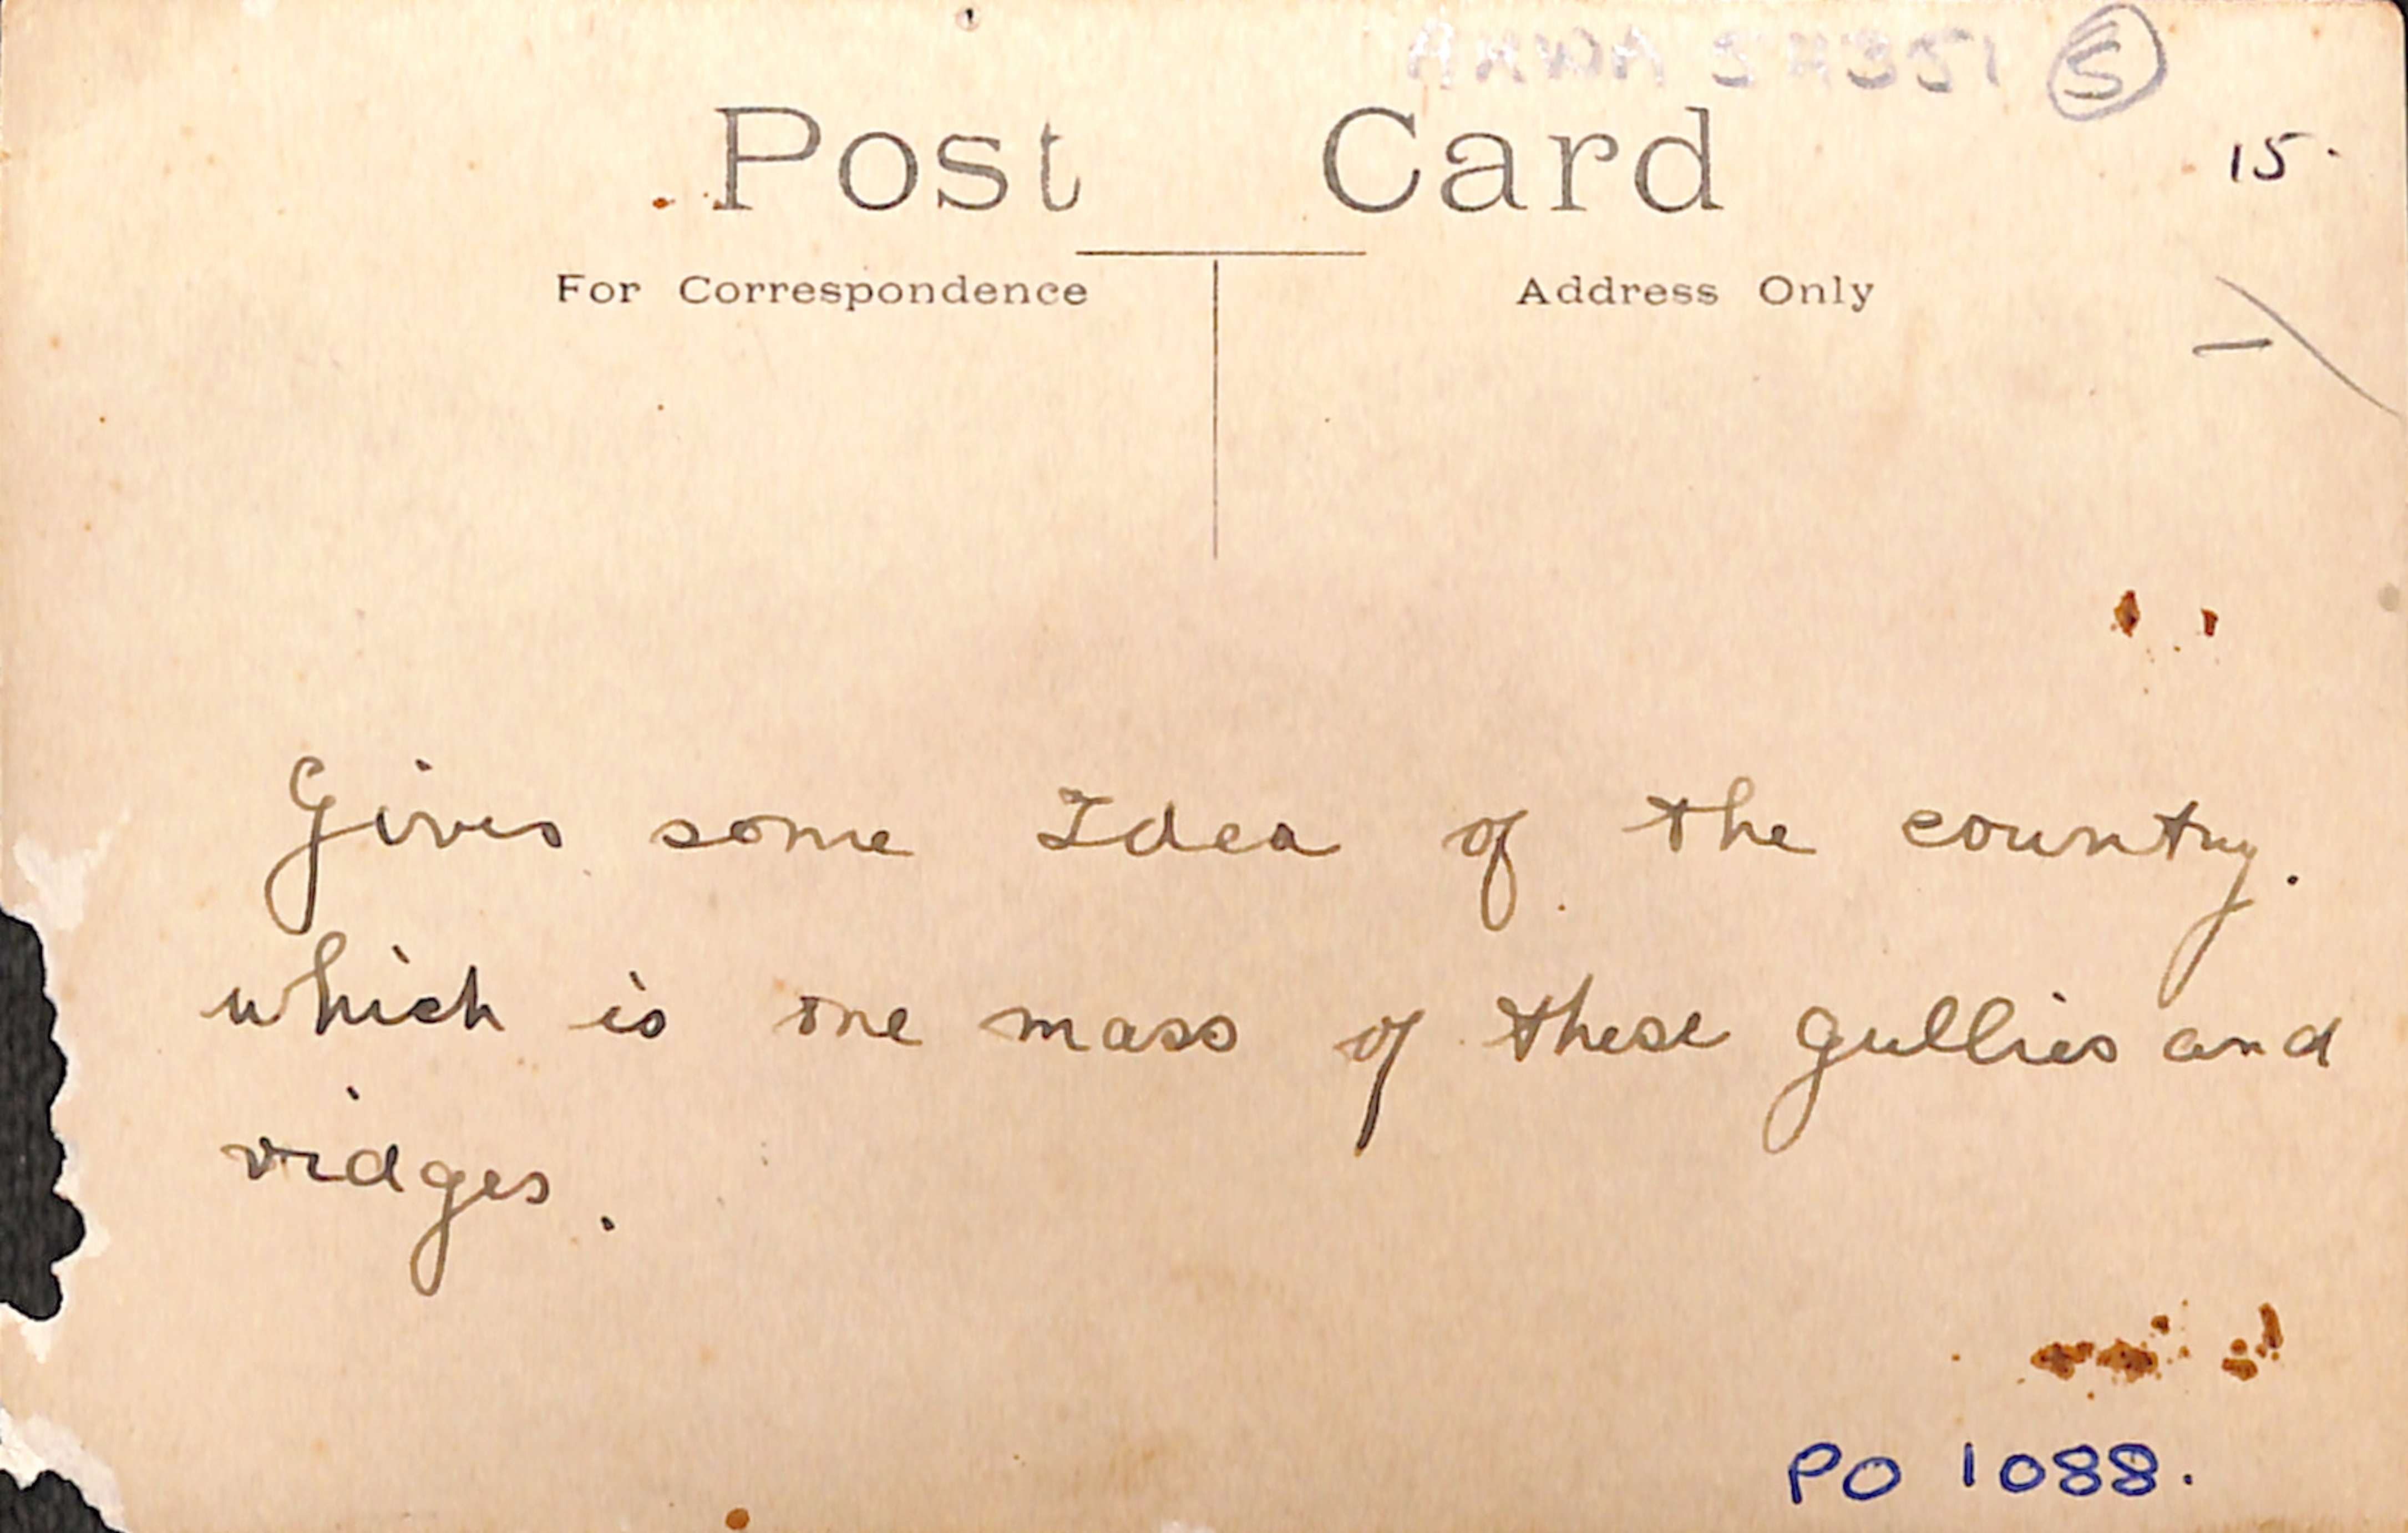 5
15.
Post Card
For Correspondence Address Only
Gives some Idea of the country.
which is one mass of these gullies and
ridges.
PO 1088.